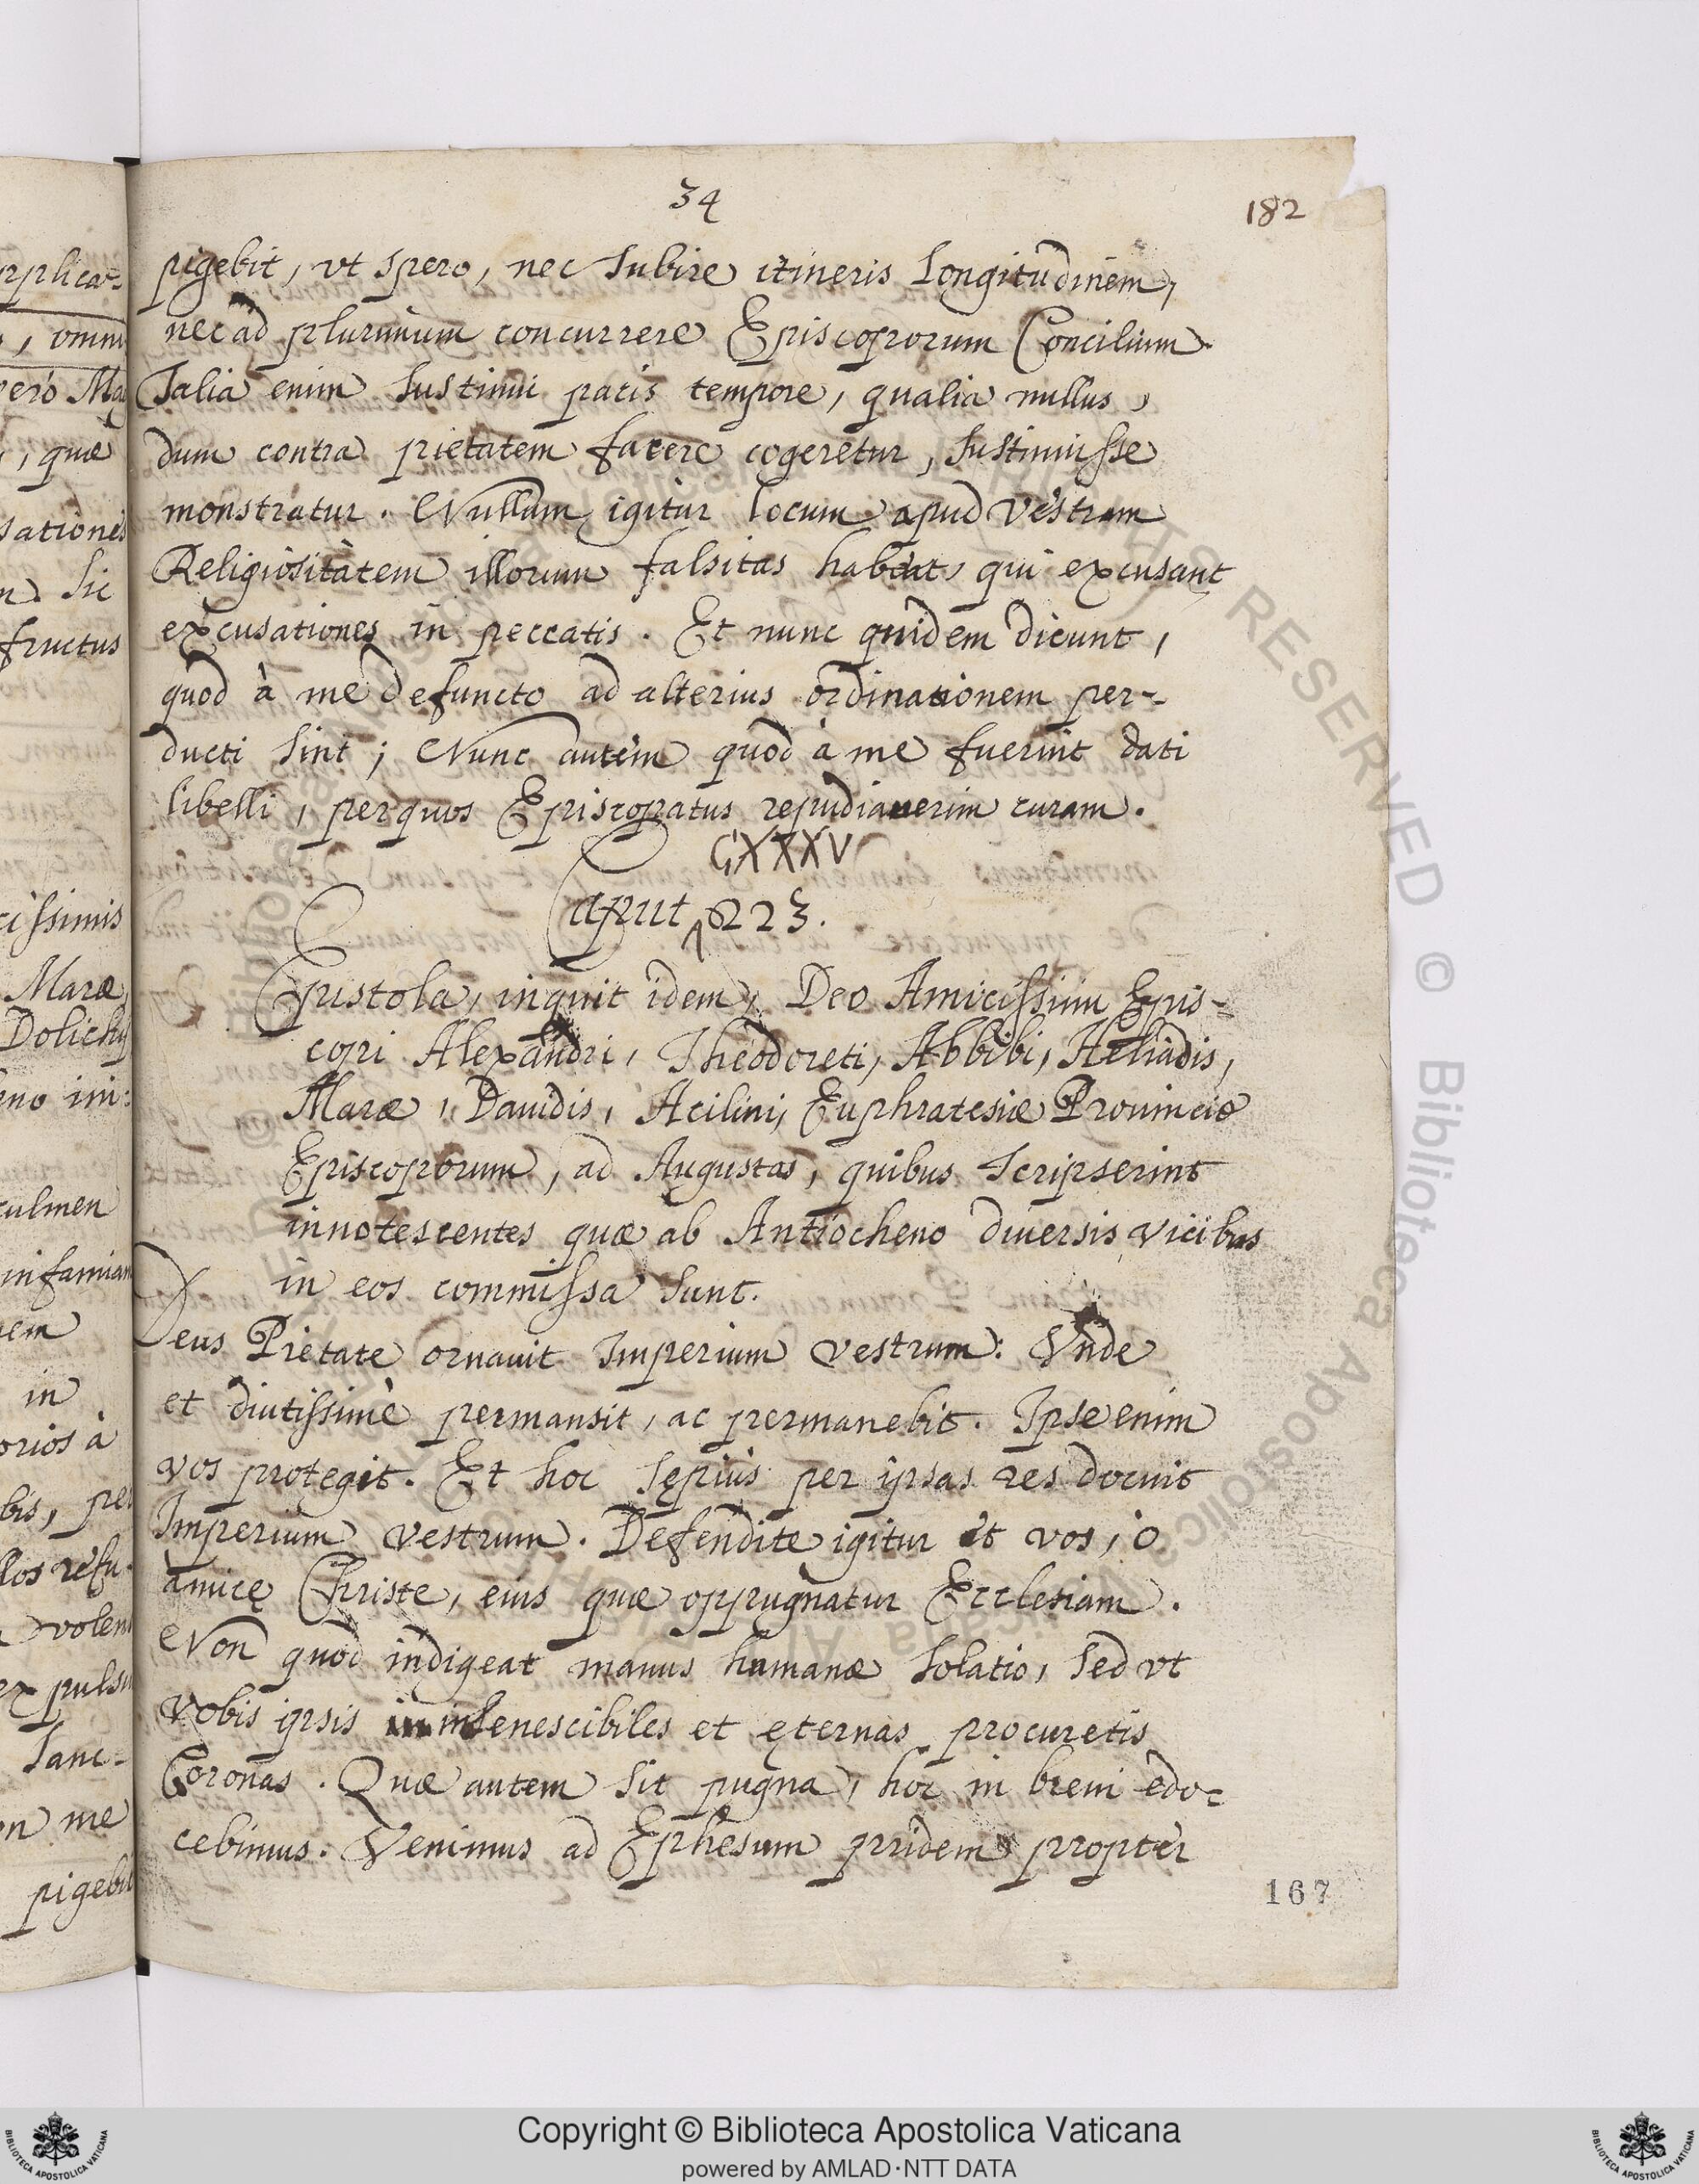 34
182
pigebit, vt spero, nec subire itineris longitudinem,
nec ad plurimum concurrere Episcoporum Concilium.
Talia enim sustinui pacis tempore, qualia nullus,
dum contra pietatem facere cogeretur, sustinuisse
monstratur. Nullum igitur locum apud vestram
Religiositatem illorum falsitas habeat, qui excusant
excusationes in peccatis. Et nunc quidem dicunt,
quod à me defuncto ad alterius ordinationem per-
ducti sint; Nunc autem quod à me fuerint dati
libelli, per quos Episcopatus repudiauerim curam.
CXXXV
Caput 223.
Epistola, inquit idem, Deo Amicissimi Epis-
copi Alexandri, Theodoreti, Abbibi, Heliadis,
Maræ, Dauidis, Acilini, Euphratesiæ Prouinciæ
Episcoporum, ad Augustas, quibus scripserint
innotescentes quæ ab Antiocheno diuersis vicibus
in eos commissa sunt.
Deus Pietate ornauit Imperium vestrum: Vnde
et diutissimè permansit, ac permanebit. Ipse enim
vos protegit. Et hoc sępius per ipsas res docuit
Imperium vestrum. Defendite igitur et vos, ò
amicę Christe, eius quæ oppugnatur Ecclesiam.
Non quod indigeat manus humanæ solatio, sed vt
vobis ipsis insenescibiles et ęternas procuretis
Coronas. Quæ autem sit pugna, hoc in breui edo-
cebimus. Venimus ad Ephesum pridem propter
167
rplica-
, omni
vero Ma
, quæ
sationes
n. sic
fructus
cissimis
Maræ,
Dolichij
eno im-
culmen
infamiam
nem
in
orios à
bis, per
los refu-
volen
ex puls
sanc-
on me
pigebit
Copyright © Biblioteca Apostolica Vaticana
powered by AMLAD·NTT DATA